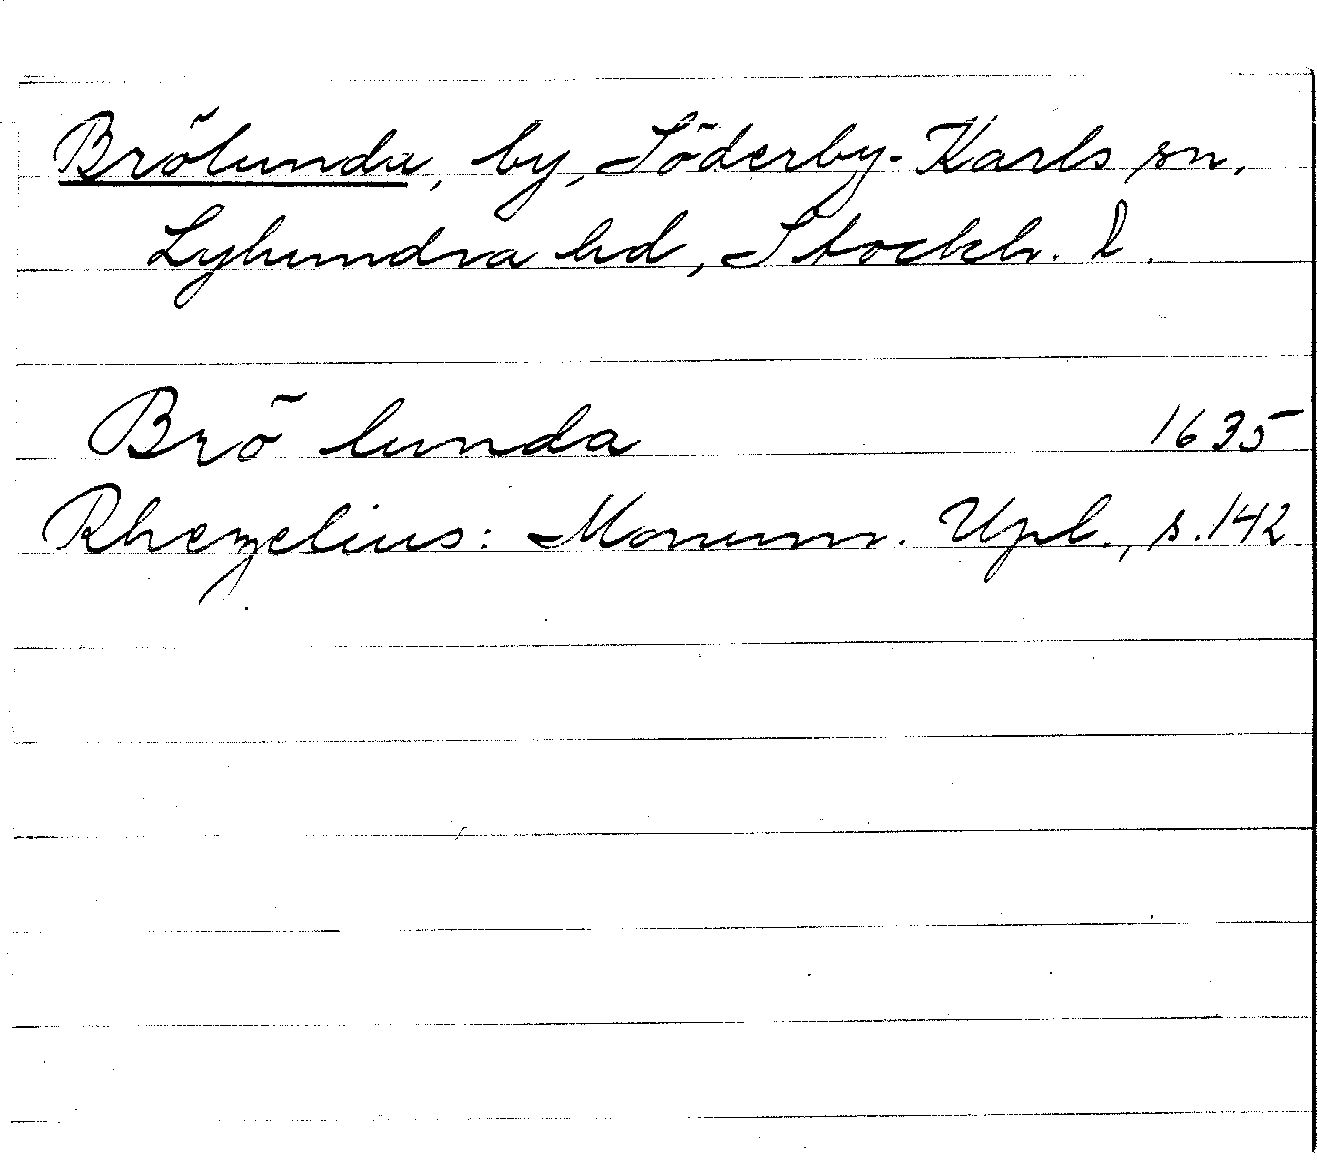 Brölunda, by, Söderby-Karls sn.
Lyhundra hd, Stockh. l.
Brö lunda 1635
Rhezelius: Monum. Upl., s. 142